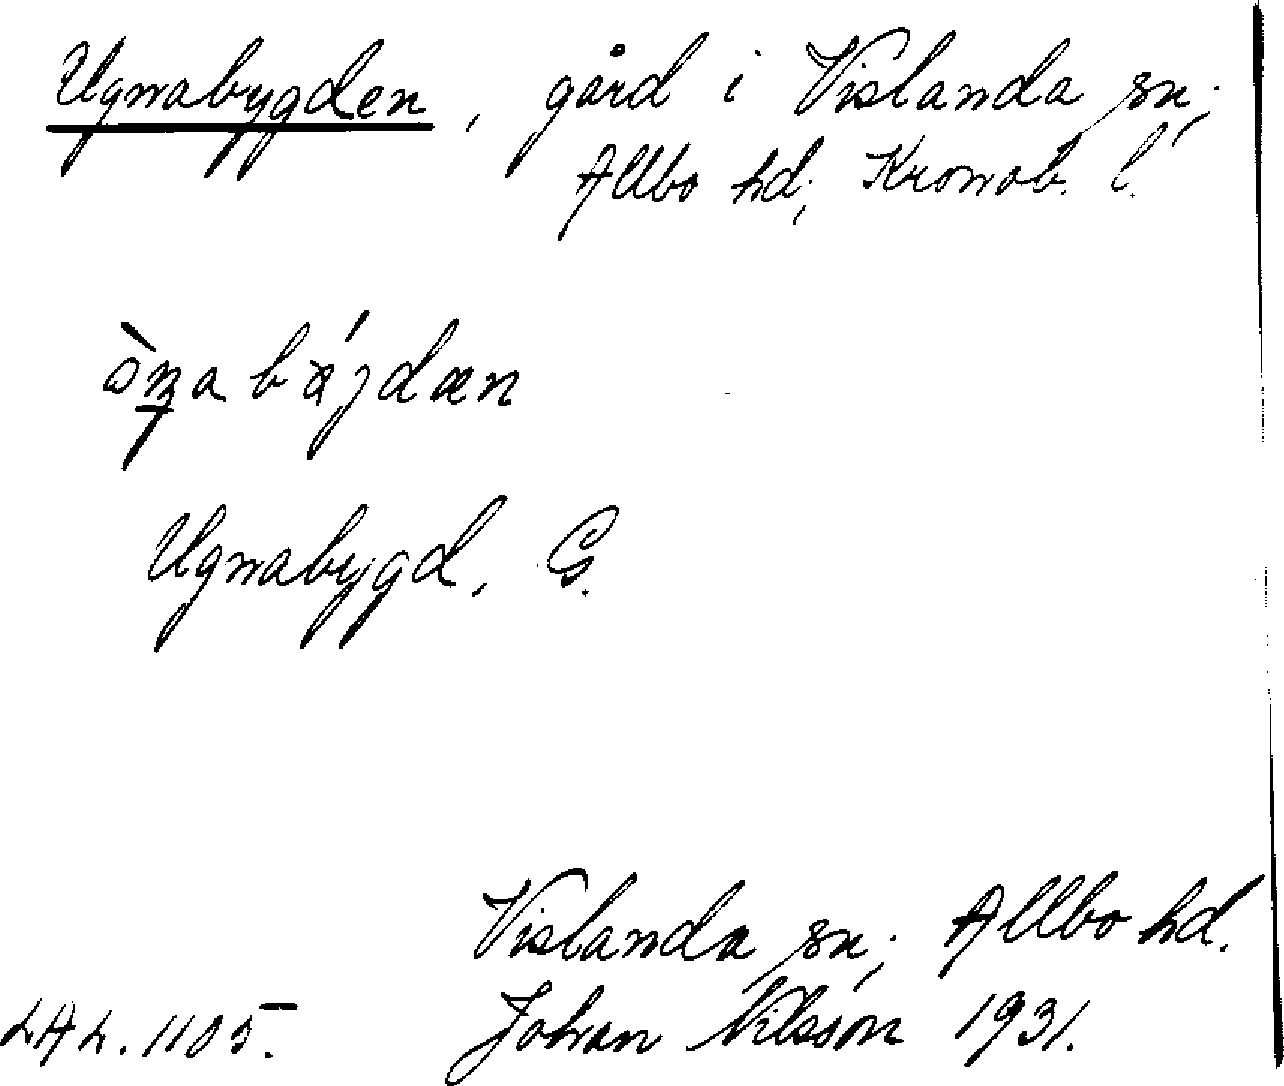 Ugnabygden, gård i Vislanda sn,
Allbo hd, Kronob. l.
Ugnabygd, G.
Vislanda sn, Allbo hd.
LAL. 1105. Johan Nilsson 1931.